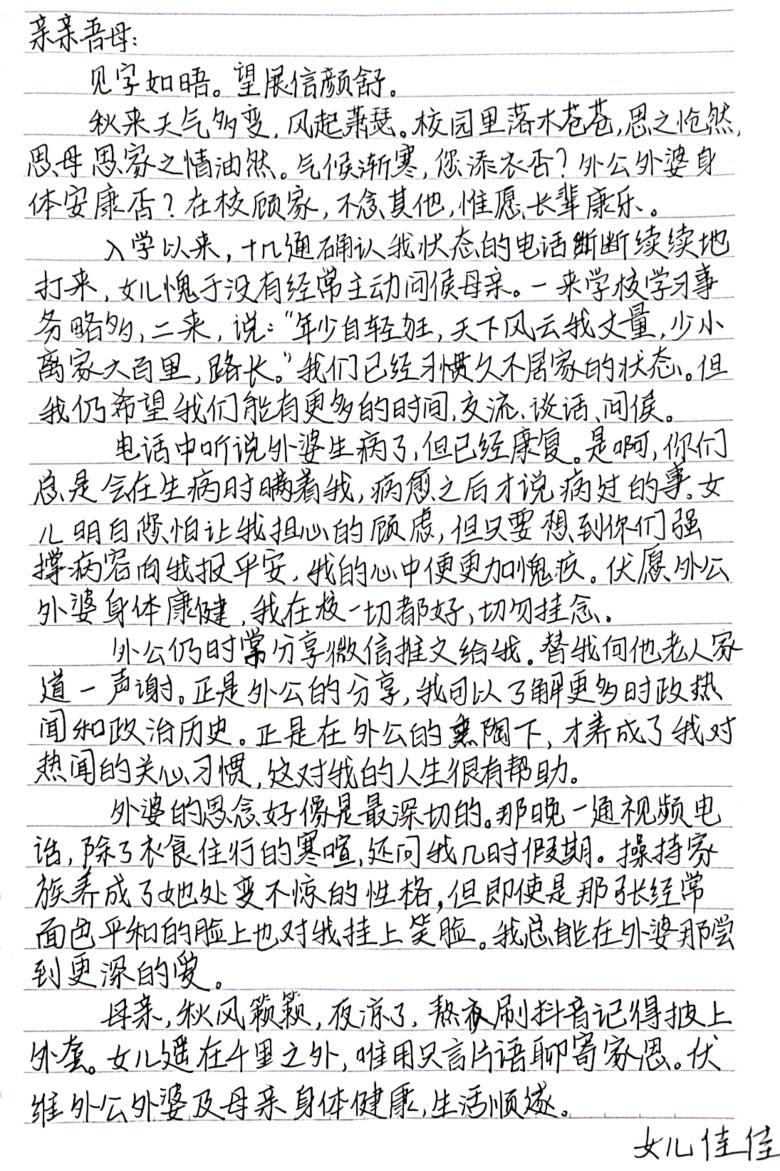 亲亲吾母：
见字如晤。望展信颜舒。
秋来天气多变，风起萧瑟。校园里落木苍苍，思之怆然，
思母思家之情油然。气候渐寒，您添衣否？外公外婆身
体安康否？在校顾家，不念其他，惟愿长辈康乐。
入学以来，十几通确认我状态的电话断断续续地
打来，女儿愧于没有经常主动问候母亲。一来学校学习事
务略多，二来，说：“年少自轻狂，天下风云我丈量，少小
离家六百里，路长。”我们已经习惯久不居家的状态。但
我仍希望我们能有更多的时间，交流、谈话、问候。
电话中听说外婆生病了，但已经康复。是啊，你们
总是会在生病时瞒着我，病愈之后才说病过的事。女
儿明白您怕让我担心的顾虑，但只要想到你们强
撑病容向我报平安，我的心中便更加愧疚。伏愿外公
外婆身体康健，我在校一切都好，切勿挂念。
外公仍时常分享微信推文给我。替我向他老人家
道一声谢。正是外公的分享，我可以了解更多时政热
闻和政治历史。正是在外公的熏陶下，才养成了我对
热闻的关心习惯，这对我的人生很有帮助。
外婆的思念好像是最深切的。那晚一通视频电
话，除了衣食住行的寒喧，还问我几时假期。操持家
族养成了她处变不惊的性格，但即使是那张经常
面色平和的脸上也对我挂上笑脸。我总能在外婆那尝
到更深的爱。
母亲，秋风簌簌，夜凉了，熬夜刷抖音记得披上
外套。女儿遥在千里之外，唯用只言片语聊寄家思。伏
维外公外婆及母亲身体健康，生活顺遂。
女儿佳佳